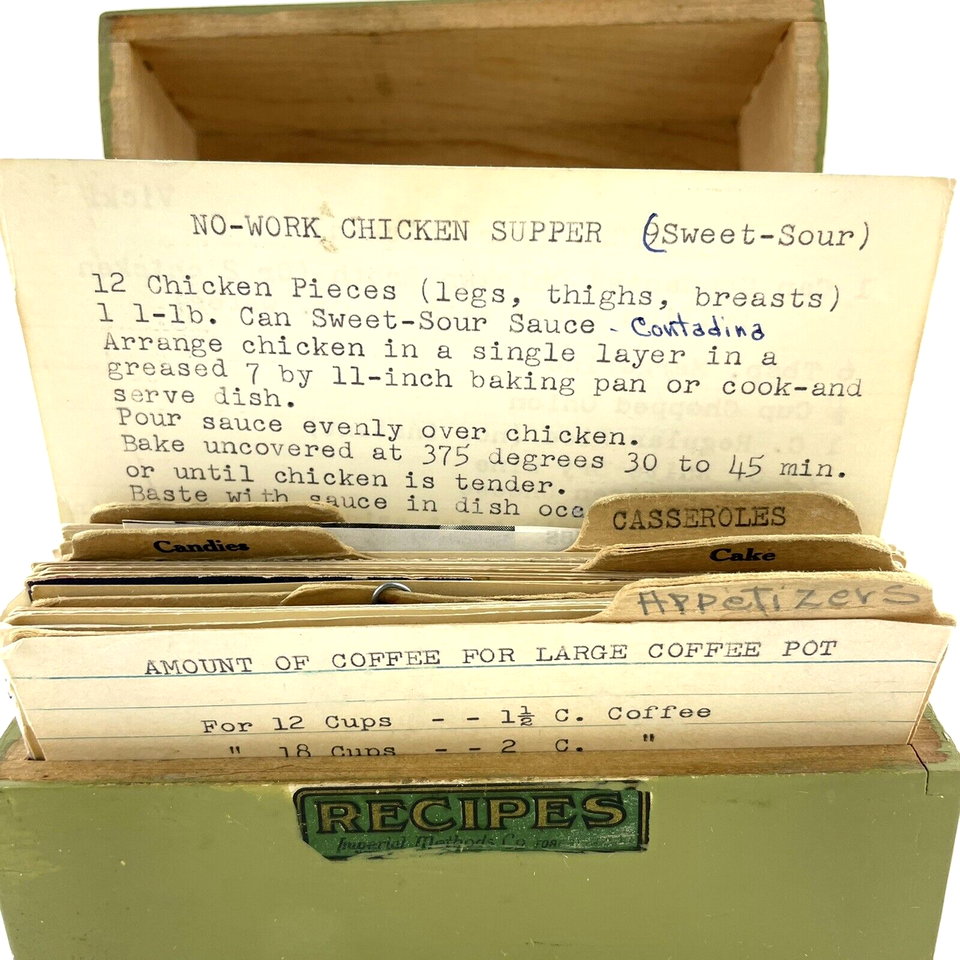 NO-WORK CHICKEN SUPPER (Sweet-Sour)
12 Chicken Pieces (legs, thighs, breasts)
1 1-lb. Can Sweet-Sour Sauce - Contadina
Arrange chicken in a single layer in a
greased 7 by 11-inch baking pan or cook-and
serve dish.
Pour sauce evenly over chicken.
Bake uncovered at 375 degrees 30 to 45 min.
or until chicken is tender.
Baste with sauce in dish occa
CASSEROLES
Candies
Cake
Appetizers
AMOUNT OF COFFEE FOR LARGE COFFEE POT
For 12 Cups - - 1½ C. Coffee
" 18 Cups - - 2 C. "
RECIPES
Imperial Methods Co.